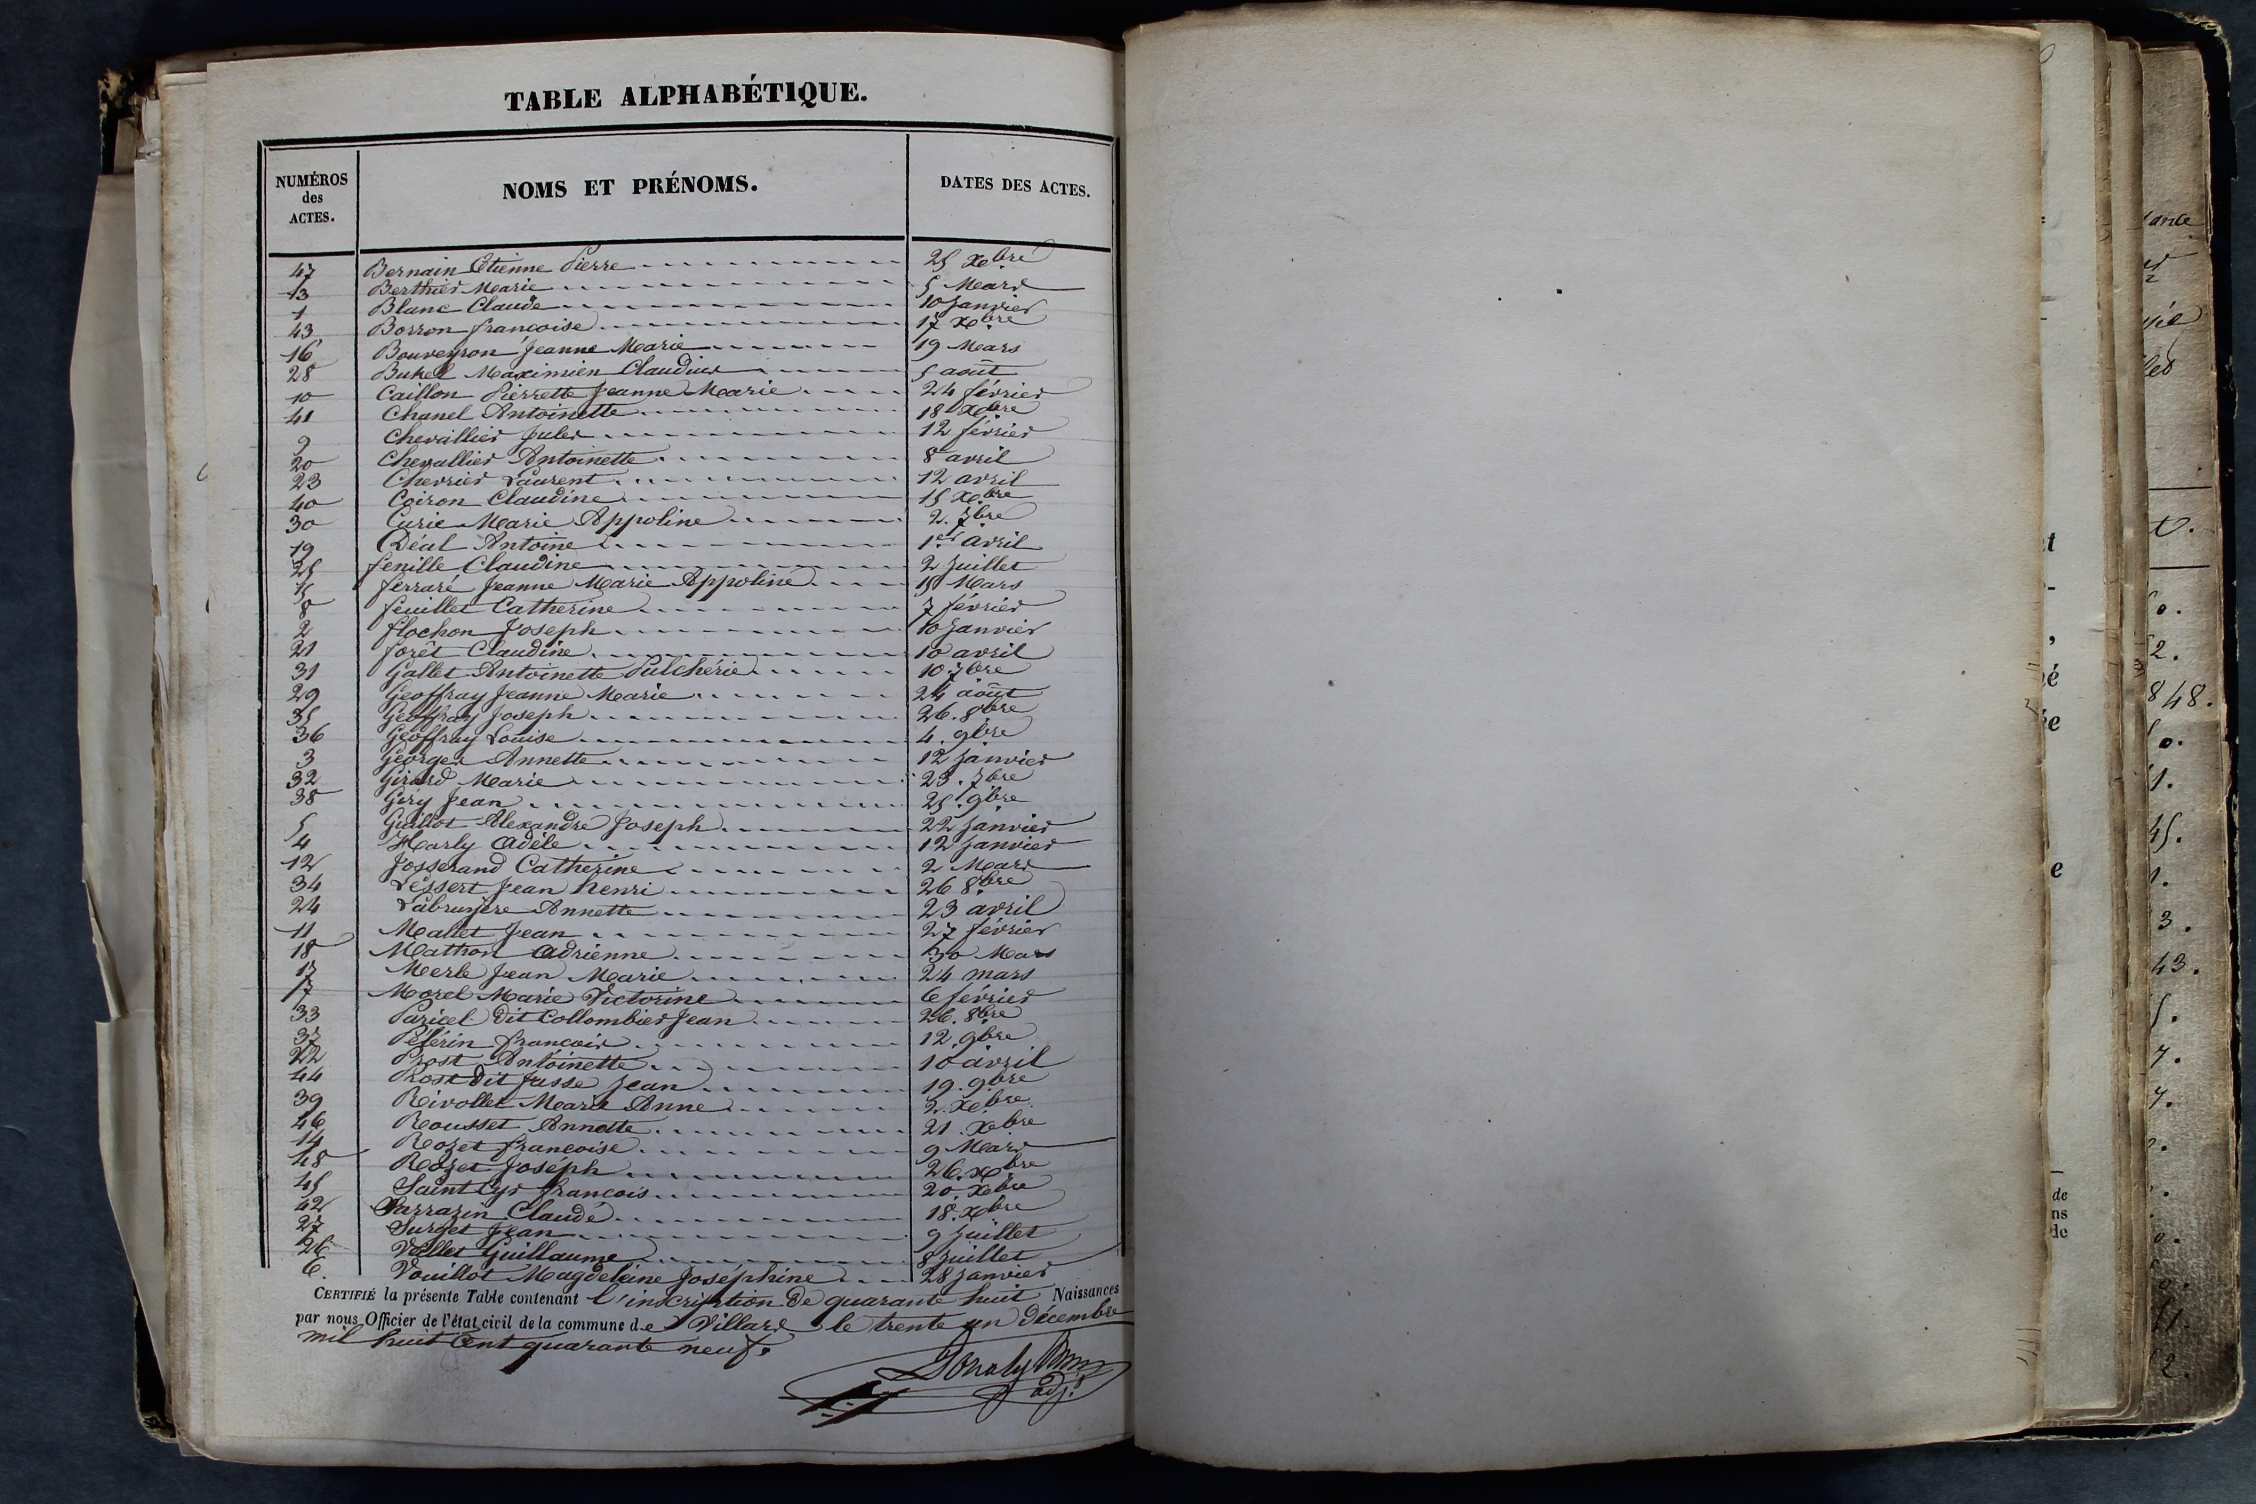 TABLE ALPHABÉTIQUE.
NUMÉROS des ACTES. NOMS ET PRÉNOMS. DATES DES ACTES.
47 Bernain Etienne Pierre 25 Xbre
13 Berthier Marie 5 Mars
1 Blanc Claude 10 Janvier
43 Borron françoise 17 Xbre
16 Bouveyron Jeanne Marie 19 Mars
28 Maximien Claudius 5 août
10 Caillon Pierrette Jeanne Marie 24 février
41 Chanel Antoinette 18 Xbre
9 Chevallier Jules 12 février
20 Chevallier Antoinette 8 avril
23 Chevrier Laurent 12 avril
40 Coiron Claudine 15 Xbre
30 Curie Marie Appoline 2. 7bre
19 Déal Antoine 1er avril
25 fenille Claudine 2 Juillet
15 ferraré Jeanne Marie Appoline 15 Mars
8 feuillet Catherine 7 février
2 flochon Joseph 10 Janvier
21 forêt Claudine 10 avril
31 Gallet Antoinette Pulchérie 10 7bre
29 Geoffray Jeanne Marie 24 août
35 Geoffray Joseph 26. 8bre
36 Geoffray Louise 4. 9bre
3 Georges Annette 12 Janvier
32 Girard Marie 23. 7bre
38 Giry Jean 25. 9bre
5 Guillot Alexandre Joseph 22 Janvier
4 Harly Adèle 12 Janvier
12 Josserand Catherine 2 Mars
34 Lessert Jean henri 26 8bre
24 Labruyère Annette 23 avril
11 Mallet Jean 27 février
18 Mathon Adrienne 30 Mars
17 Merle Jean Marie 24 mars
7 Morel Marie Victorine 6 février
33 Paricel dit Collombier Jean 26. 8bre
37 Péférin françois 12. 9bre
22 Prost Antoinette 10 avril
44 Prost dit Jusse Jean 19. 9bre
39 Rivollet Marie Anne 2. Xbre
46 Rousset Annette 21. Xbre
14 Rozet françoise 9 Mars
48 Rozet Joseph 26. Xbre
45 Saint Cyr françois 20. Xbre
42 Sarrazin Claude 18. Xbre
27 Surget Jean 9 Juillet
26 Vollet Guillaume 8 Juillet
6. Vouillot Magdeleine Joséphine 28 Janvier
CERTIFIÉ la présente Table contenant l'inscription de quarante huit Naissances
par nous Officier de l'état civil de la commune de Villars le trente un Décembre
mil huit cent quarante neuf.
adj.t